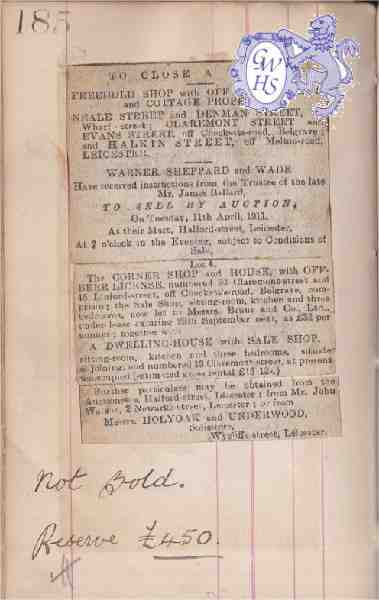 185
GWHS
TO CLOSE A
FREEHOLD SHOP with OFF
and COTTAGE PROPE
NEALE STREET and DENMAN STREET,
Wharf-street; CLAREMONT STREET and
EVANS STREET, off Checketts-road, Belgrave;
and HALKIN STREET, off Melton-road,
LEICESTER.
WARNER SHEPPARD and WADE
Have received instructions from the Trustee of the late
Mr. James Ballard,
TO SELL BY AUCTION,
On Tuesday, 11th April, 1911,
At their Mart, Halford-street, Leicester,
At 7 o'clock in the Evening, subject to Conditions of
Sale,
Lot 4.
The CORNER SHOP and HOUSE, with OFF-
BEER LICENSE, numbered Claremont-street and
off Checketts-road, Belgrave, com-
prising the Sale Shop, sitting-room, kitchen and three
bedrooms, now let to Messrs. and Co., Ltd.,
under lease expiring 29th September next, at £32 per
annum; together with
A DWELLING-HOUSE with SALE SHOP,
sitting-room, kitchen and three bedrooms, situate
adjoining and numbered Claremont-street, at present
unoccupied (estimated gross rental
Further particulars may be obtained from the
Auctioneers, Halford-street, Leicester; from Mr. John
2 Newarke-street, Leicester; or from
Messrs. HOLYOAK and UNDERWOOD,
Solicitors,
Wycliffe-street, Leicester.
Not Sold.
Reserve £450.